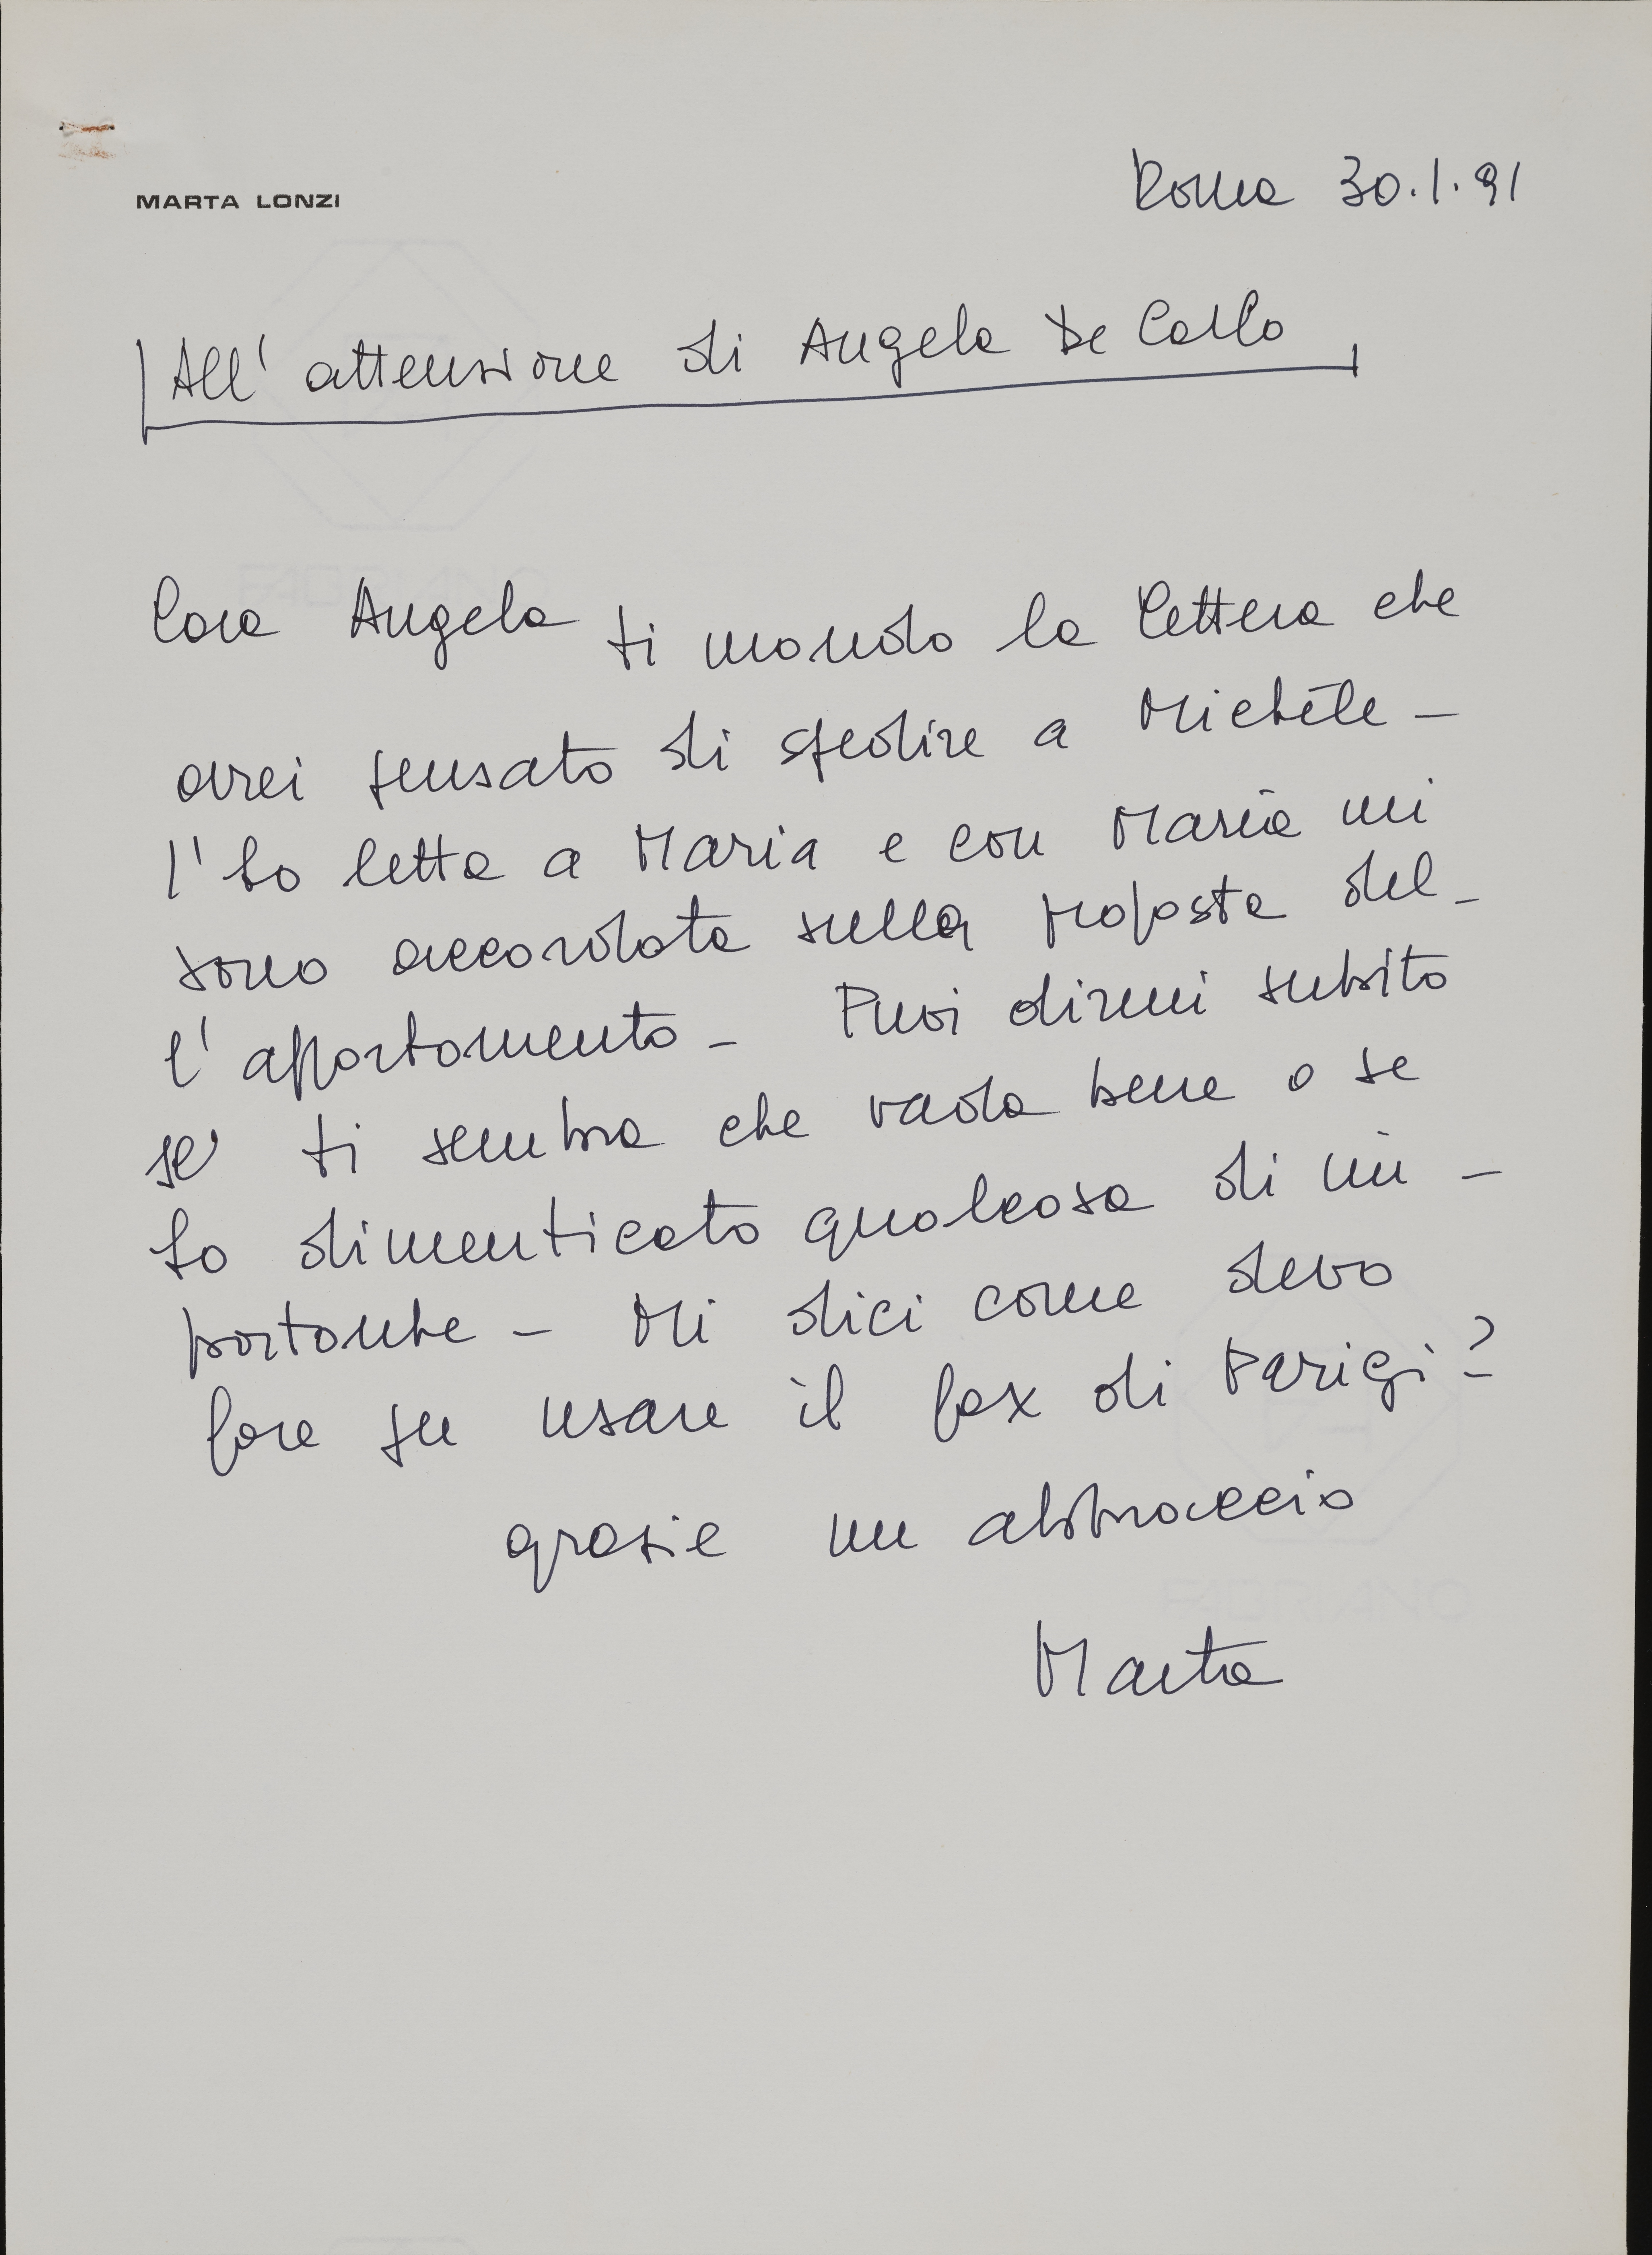 MARTA LONZI
Roma 30.1.91
All' attenzione di Angela De Carlo
Cara Angela ti mando la lettera che
avrei pensato di spedire a Michèle -
l'ho letta a Maria e con Maria mi
sono accordata sulla proposta del-
l'appartamento - Puoi dirmi subito
se ti sembra che vada bene o se
ho dimenticato qualcosa di im-
portante - Mi dici come devo
fare per usare il fax di Parigi?
grazie un abbraccio
Marta